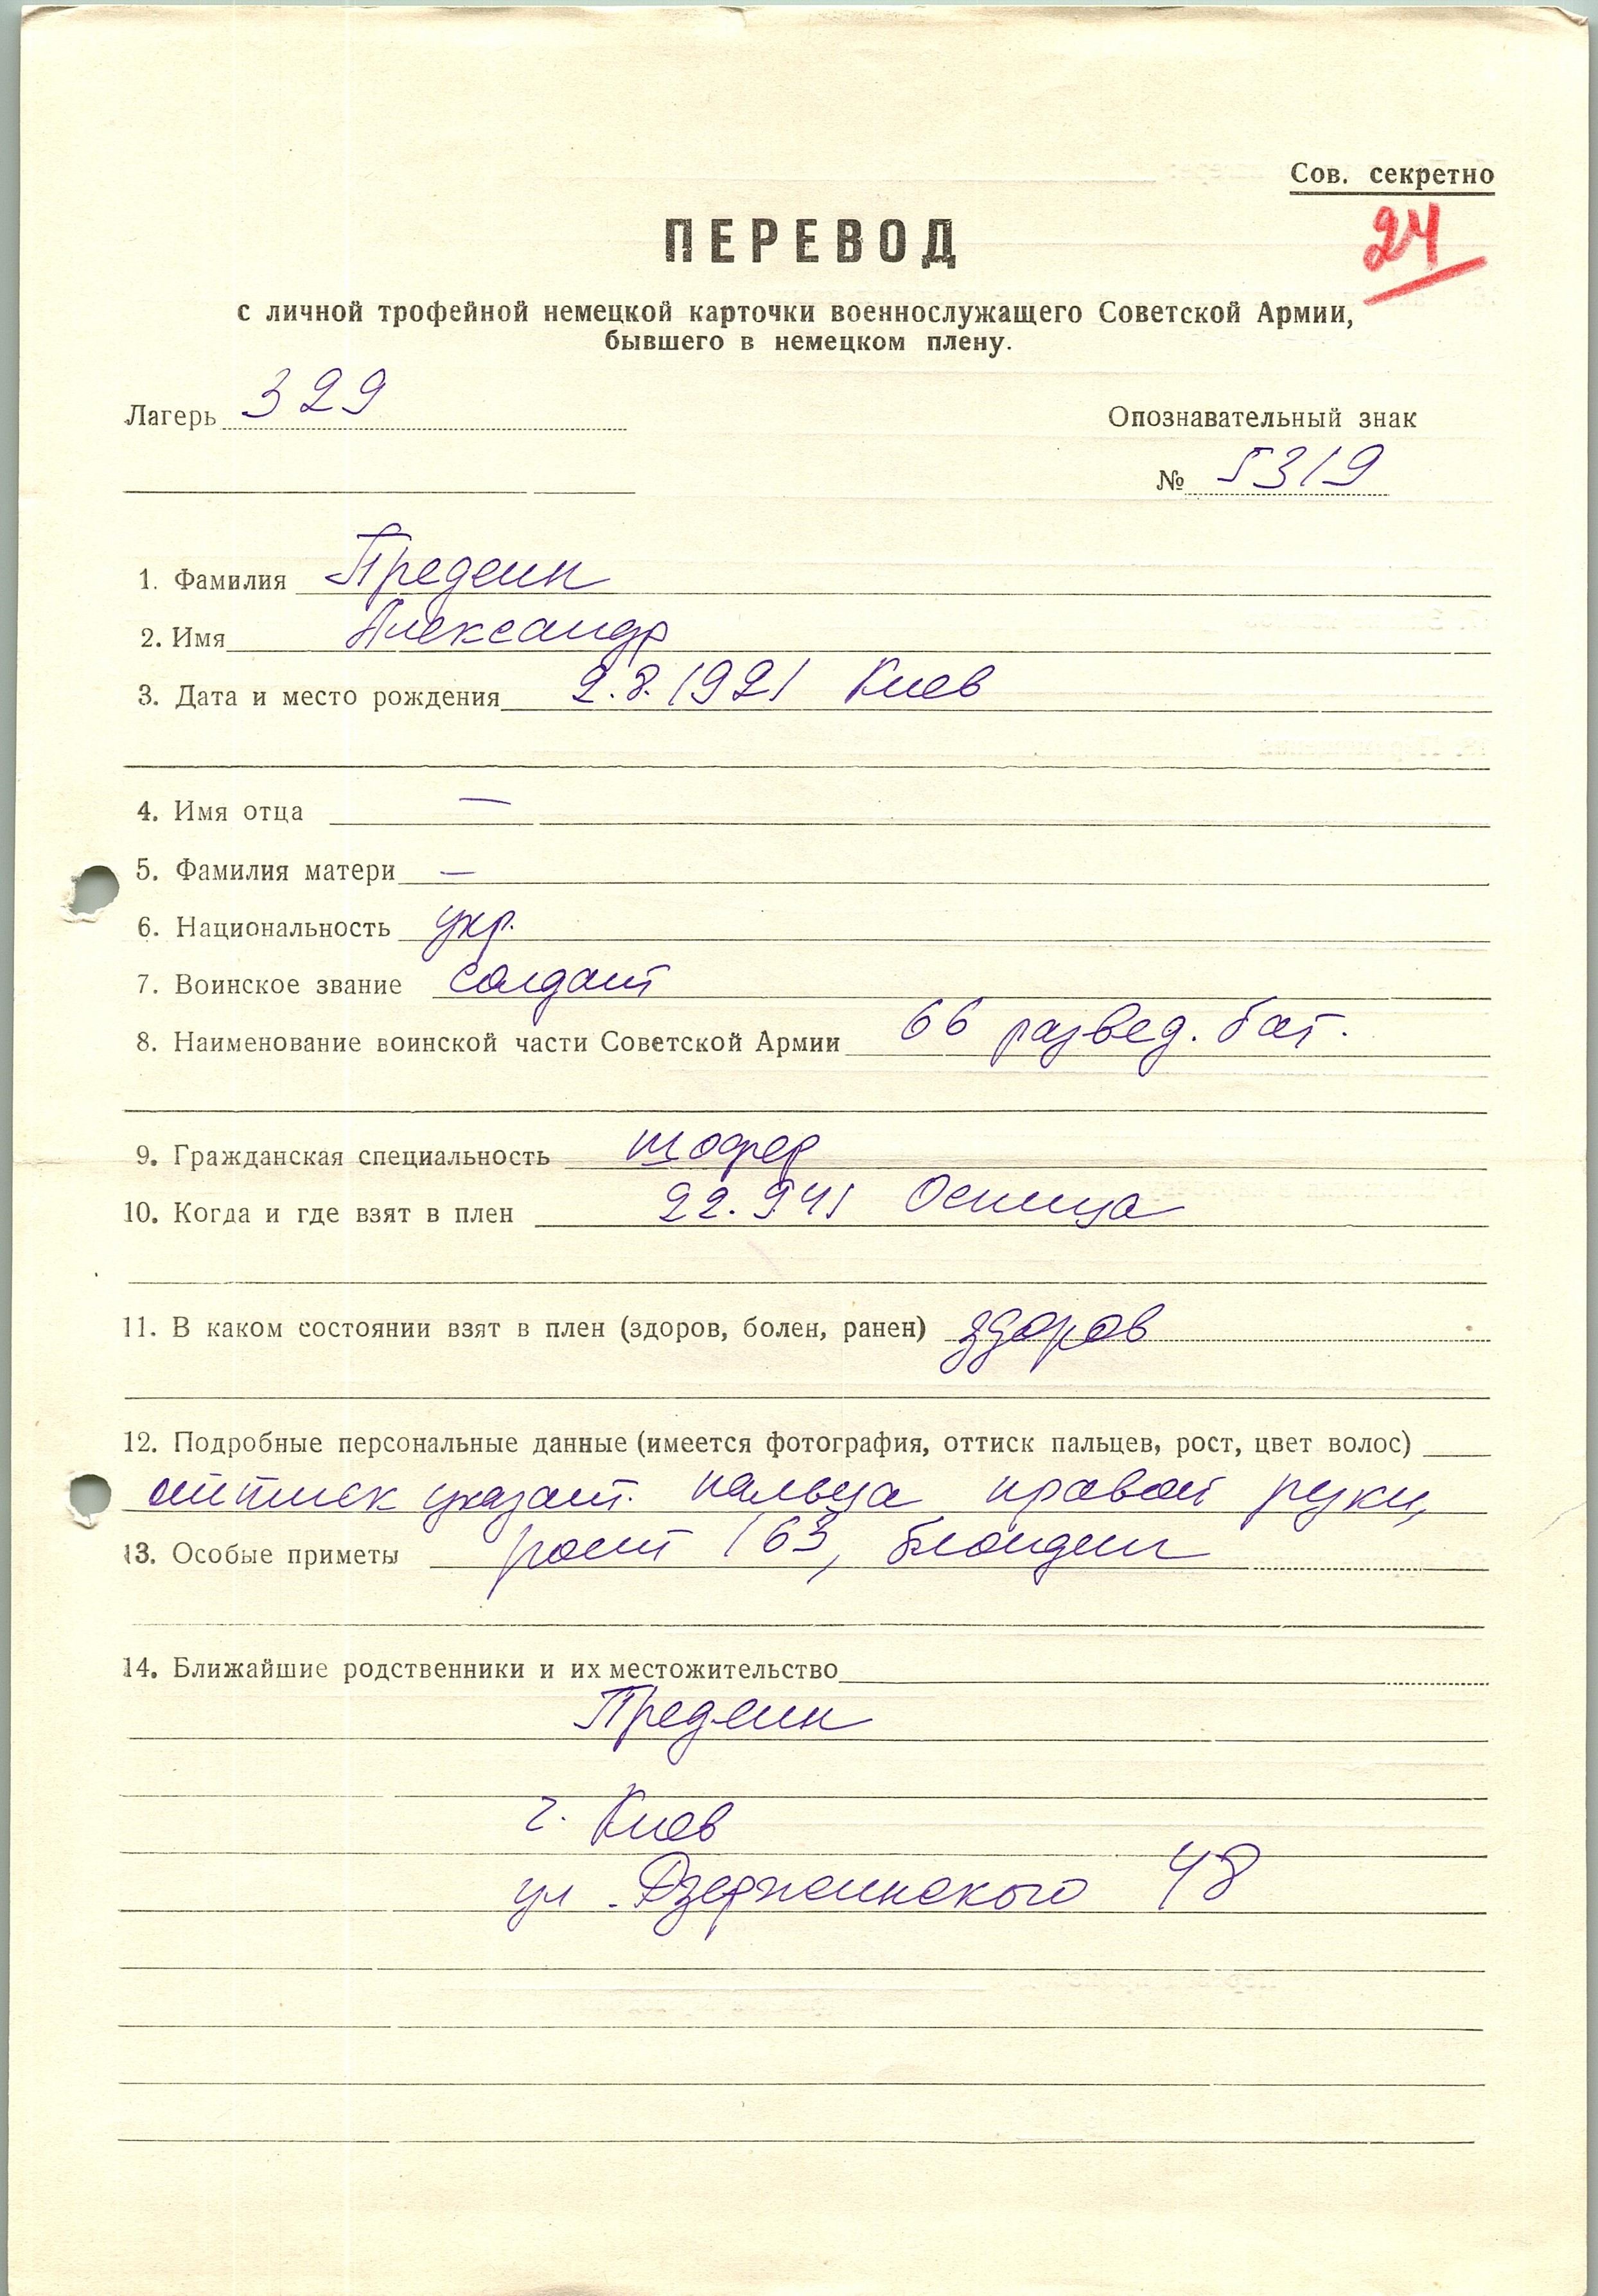 Сов. секретно
24
ПЕРЕВОД
с личной трофейной немецкой карточки военнослужащего Советской Армии,
бывшего в немецком плену.
Лагерь 329
Опознавательный знак
№ 5319
1. Фамилия Предеин
2. Имя Александр
3. Дата и место рождения 2.8.1921 Киев
4. Имя отца —
5. Фамилия матери —
6. Национальность укр.
7. Воинское звание солдат
8. Наименование воинской части Советской Армии 66 развед. бат.
9. Гражданская специальность шофер
10. Когда и где взят в плен 22.9.41
11. В каком состоянии взят в плен (здоров, болен, ранен) здоров
12. Подробные персональные данные (имеется фотография, оттиск пальцев, рост, цвет волос)
оттиск указат. пальца правой руки,
13. Особые приметы рост 163, блондин
14. Ближайшие родственники и их местожительство
Предеин
г. Киев
ул. Дзержинского 48